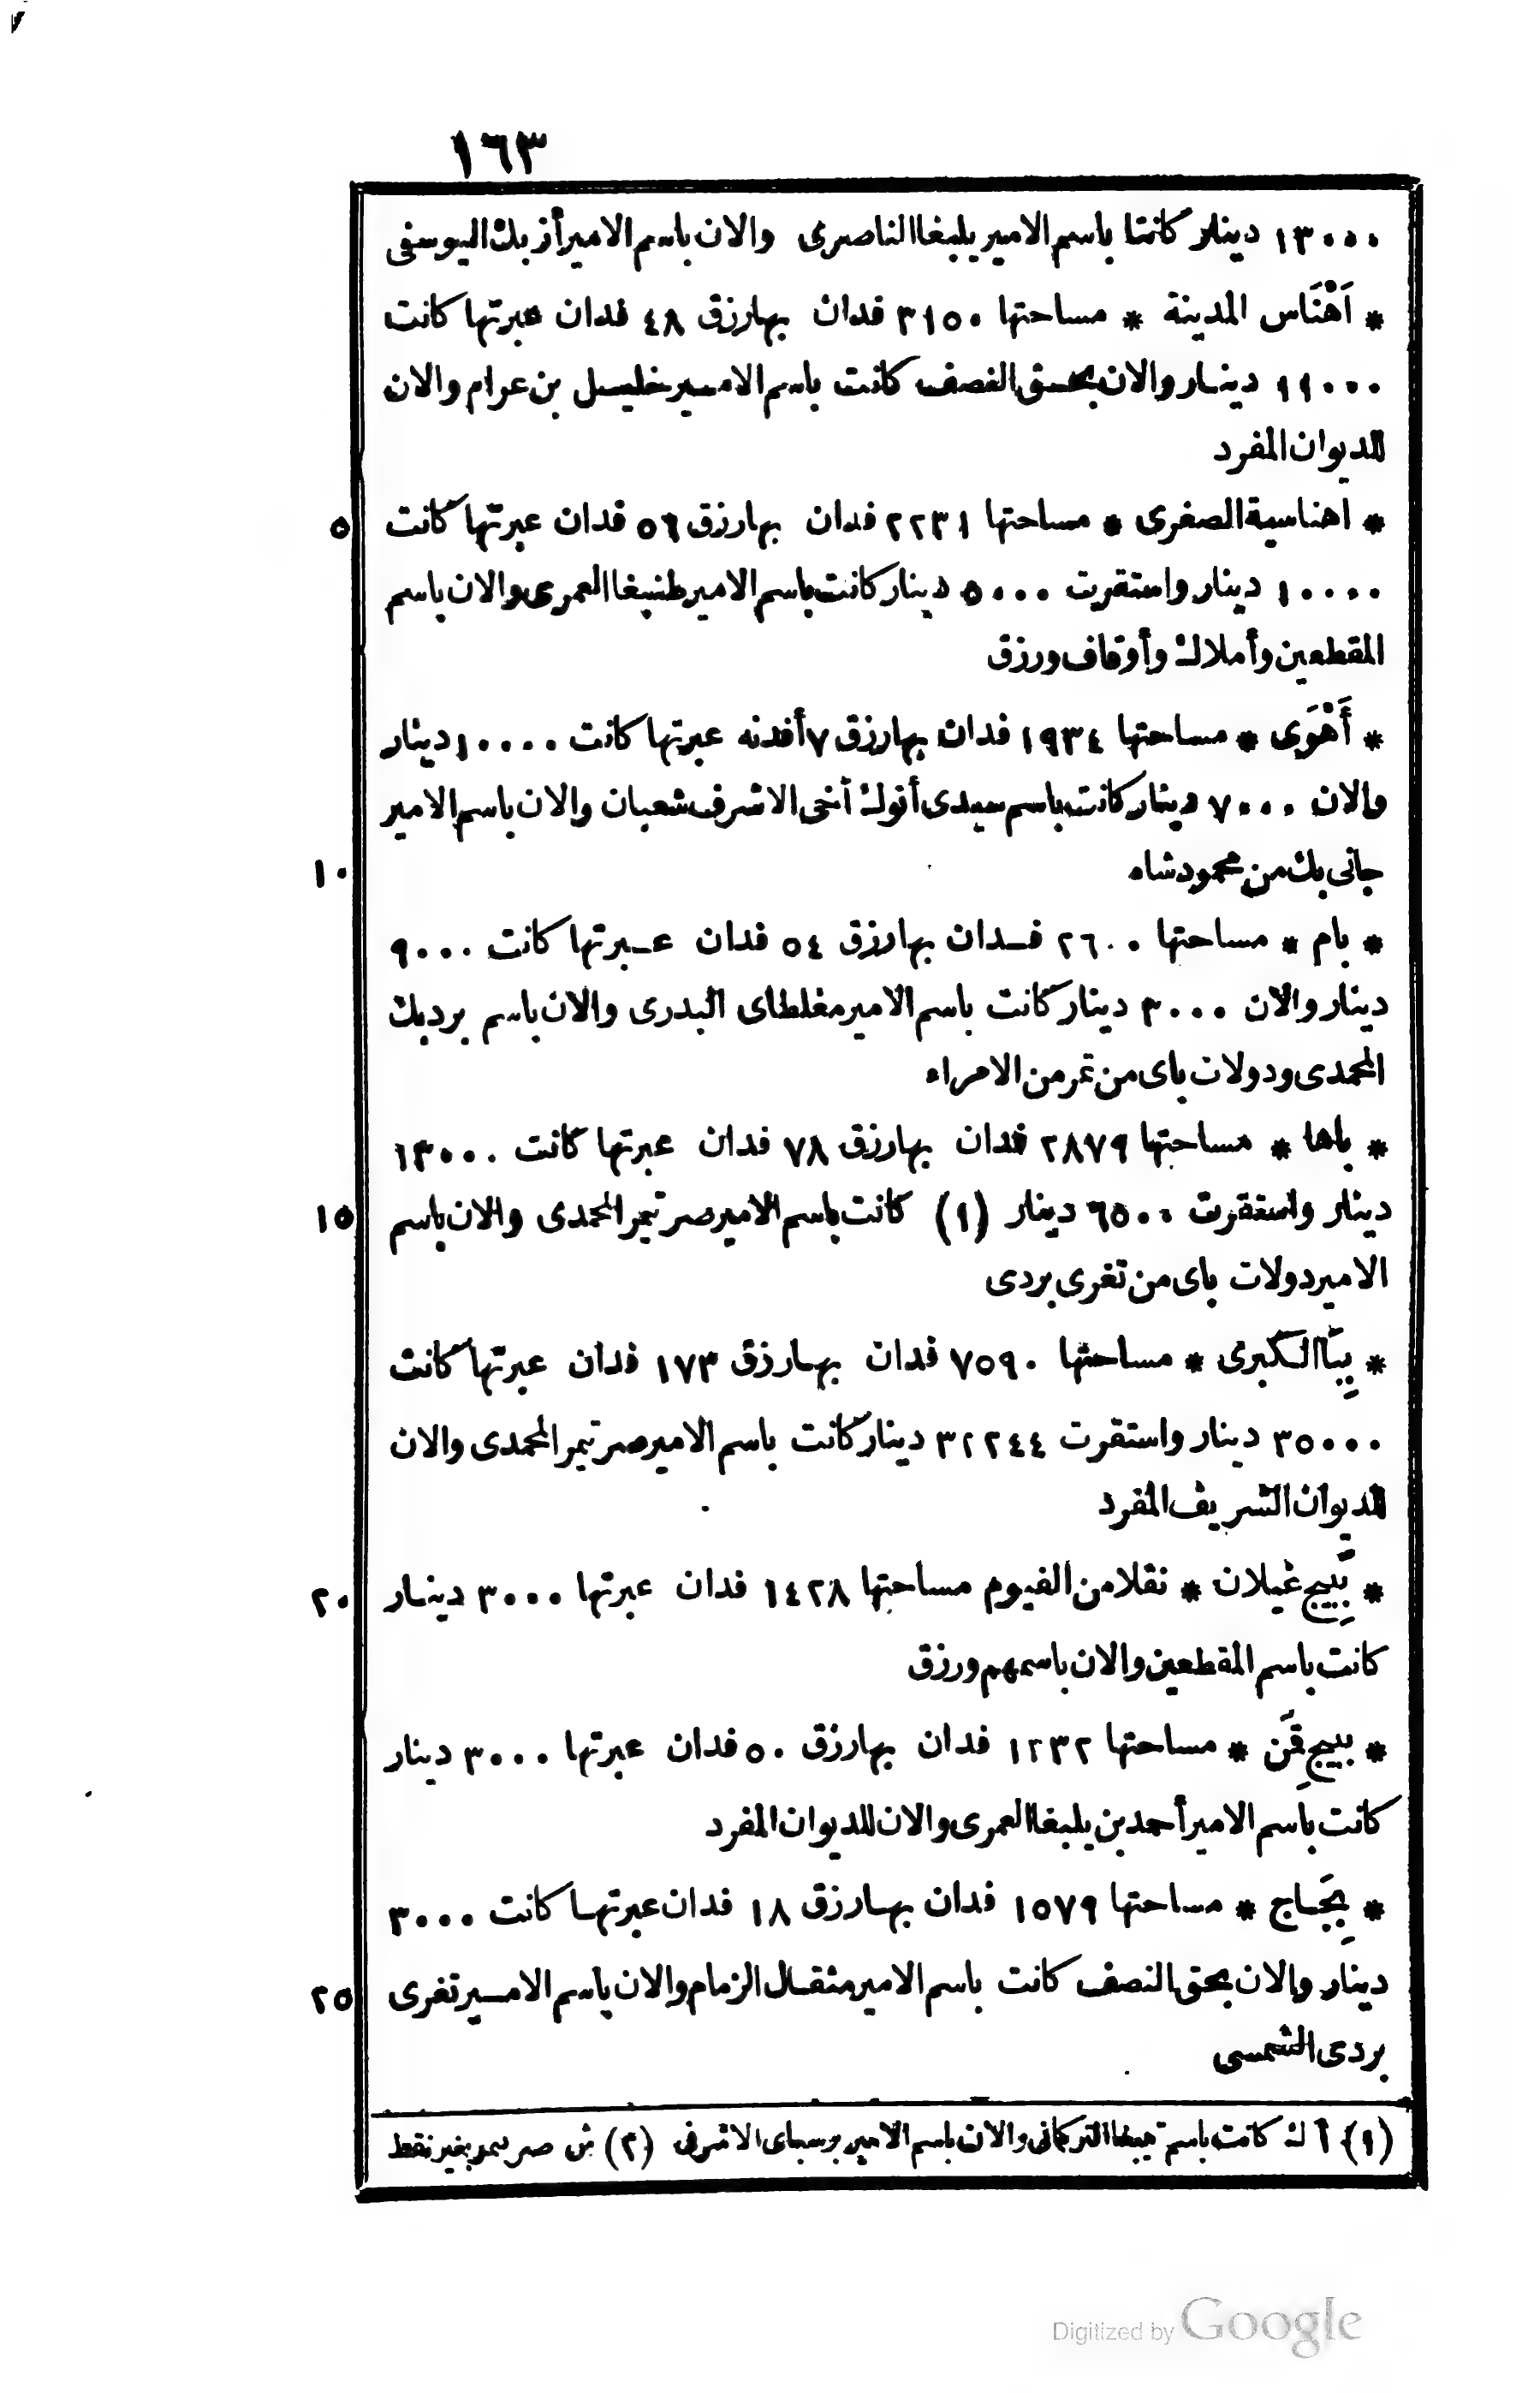 ١٦٣
١٣٠٠٠ دينار كانتا باسم الامير يلبغا الناصرى والان باسم الامير أزبك اليوسفى
* اَهْنَاس المدينة * مساحتها ٣١٥٠ فدان بها رزق ٤٨ فدان عبرتها كانت
١١٠٠٠ دينار والان بحق النصف كانت باسم الامير خليل بن عرام والان
للديوان المفرد
* اهناسية الصغرى * مساحتها ٢٢٣١ فدان بها رزق ٥٦ فدان عبرتها كانت ٥
١٠٠٠٠ دينار واستقرت ٥٠٠٠ دينار كانت باسم الامير طنبغا العمرى والان باسم
المقطعين وأملاك وأوقاف ورزق
* أَهْوَى * مساحتها ١٩٣٤ فدان بها رزق ٧ أفدنه عبرتها كانت ١٠٠٠٠ دينار
والان ٧٠٠٠ دينار كانت باسم سيدى أنوك أخى الاشرف شعبان والان باسم الامير
جانى بك من محمود شاه ١٠
* بام * مساحتها ٢٦٠٠ فدان بها رزق ٥٤ فدان عبرتها كانت ٩٠٠٠
دينار والان ٣٠٠٠ دينار كانت باسم الامير مغلطاى البدرى والان باسم بردبك
المحمدى ودولات باى من تمر من الامراء
* باها * مساحتها ٢٨٧٩ فدان بها رزق ٧٨ فدان عبرتها كانت ١٣٠٠٠
دينار واستقرت ٦٥٠٠ دينار (١) كانت باسم الامير صرتمر المحمدى والان باسم ١٥
الامير دولات باى من تغرى بردى
* بِبَا الكبرى * مساحتها ٧٥٩٠ فدان بها رزق ١٧٣ فدان عبرتها كانت
٣٥٠٠٠ دينار واستقرت ٣٢٢٤٤ دينار كانت باسم الامير صرتمر المحمدى والان
للديوان الشريف المفرد
* بَِبِيج غيلان * نقلا من الفيوم مساحتها ١٤٢٨ فدان عبرتها ٣٠٠٠ دينار ٢٠
كانت باسم المقطعين والان باسمهم ورزق
* ببيج قِمَن * مساحتها ١٢٣٢ فدان بها رزق ٥٠ فدان عبرتها ٣٠٠٠ دينار
كانت باسم الامير أحمد بن يلبغا العمرى والان للديوان المفرد
* بِجَاج * مساحتها ١٥٧٩ فدان بها رزق ١٨ فدان عبرتها كانت ٣٠٠٠
دينار والان بحق النصف كانت باسم الامير مثقال الزمام والان باسم الامير تغرى ٢٥
بردى الشمسى
(١) آ ك كانت باسم التركمانى والان باسم الامير برسباى الاشرفى (٢) ش صر بغير نقط
Digitized by Google